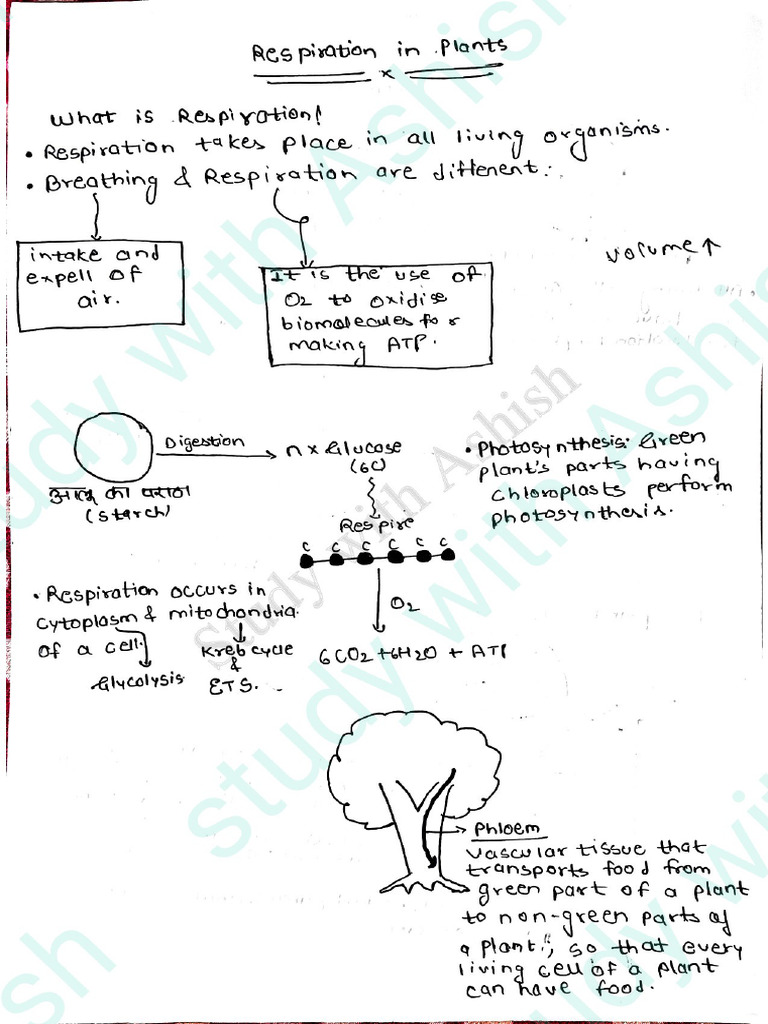 Respiration in Plants
x
What is Respiration!
• Respiration takes place in all living organisms.
• Breathing & Respiration are different.
intake and
expell of
air.
It is the use of
O2 to oxidise
biomolecules for
making ATP.
Volume ↑
Digestion
n x Glucose
(6C)
आलू का पराठा
(starch)
Respire
C C C C C C
O2
6CO2 + 6H2O + ATP
• Photosynthesis: Green
plant's parts having
chloroplasts perform
photosynthesis.
• Respiration occurs in
cytoplasm & mitochondria
of a cell.
Glycolysis
Kreb cycle
&
ETS.
Phloem
Vascular tissue that
transports food from
green part of a plant
to non-green parts of
a plant", so that every
living cell of a plant
can have food.
Study with Ashish
study with Ashish
study with Ashish